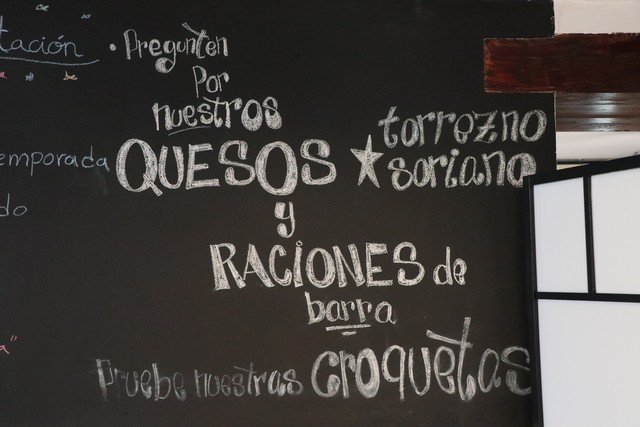 tación
• Pregunten
Por
nuestros
QUESOS
★ torrezno
soriano
emporada
y
do
RACIONES de
barra
a"
Pruebe nuestras croquetas